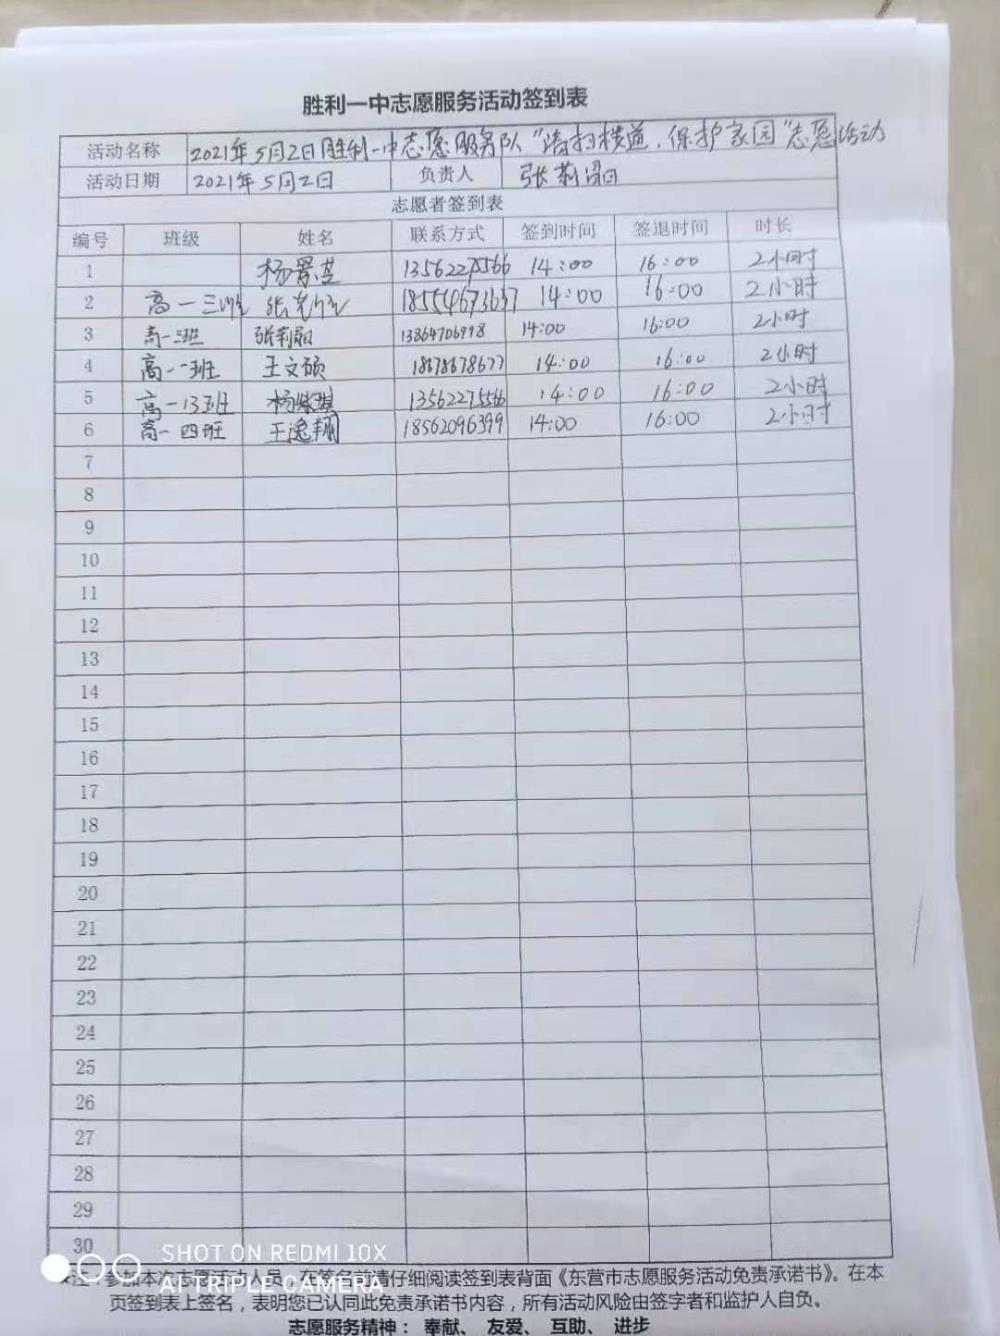 胜利一中志愿服务活动签到表
活动名称 2021年5月2日胜利一中志愿服务队"清扫楼道,保护家园"志愿活动
活动日期 2021年5月2日 负责人 张莉娟
志愿者签到表
编号 班级 姓名 联系方式 签到时间 签退时间 时长
1 杨景芝 13562275566 14:00 16:00 2小时
2 高一三班 18554673637 14:00 16:00 2小时
3 高一班 张莉娟 13864706998 14:00 16:00 2小时
4 高一班 王文硕 18678678677 14:00 16:00 2小时
5 高一13班 杨 13562275566 14:00 16:00 2小时
6 高一四班 王逸翔 18562096399 14:00 16:00 2小时
7
8
9
10
11
12
13
14
15
16
17
18
19
20
21
22
23
24
25
26
27
28
29
30
SHOT ON REDMI 10X
AI TRIPLE CAMERA
注:参加本次志愿活动人员,在签名前请仔细阅读签到表背面《东营市志愿服务活动免责承诺书》。在本
页签到表上签名,表明您已认同此免责承诺书内容,所有活动风险由签字者和监护人自负。
志愿服务精神: 奉献、 友爱、 互助、 进步